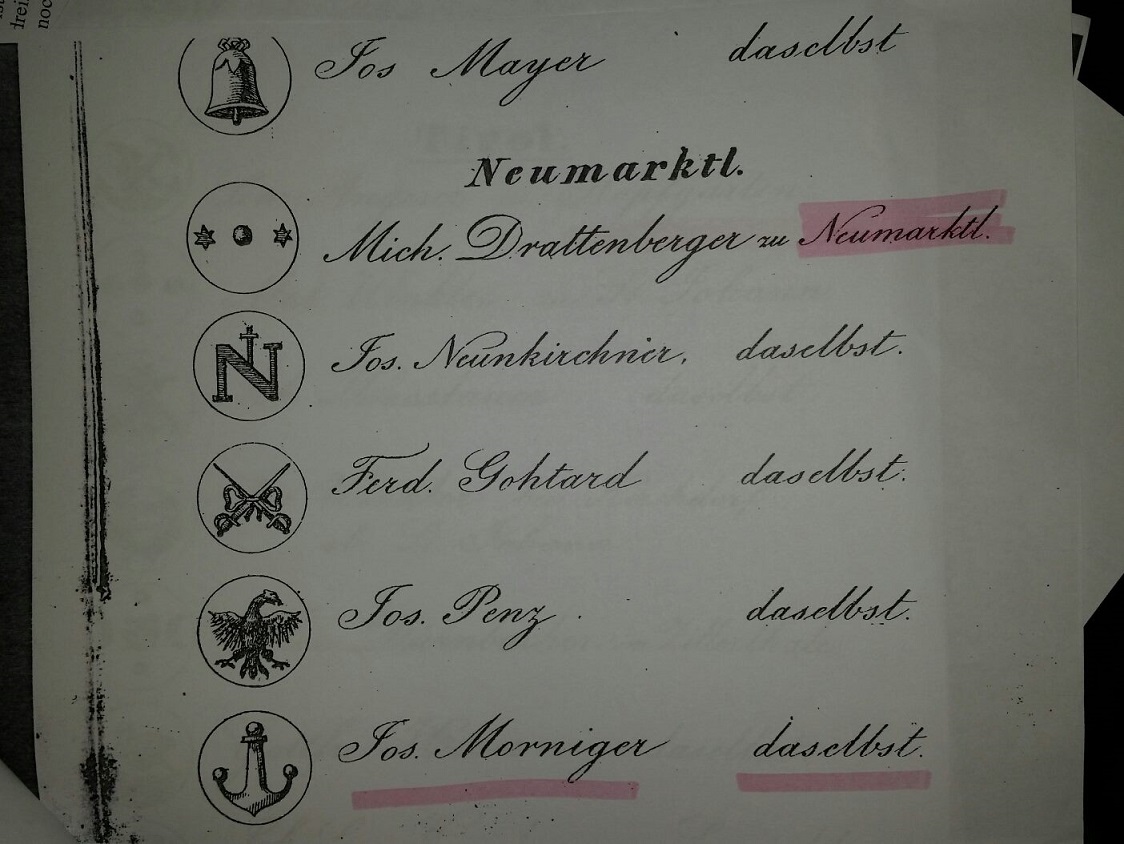 frei
noc
Jos Mayer daselbst
Neumarktl.
Mich. Drattenberger zu Neumarktl.
N
Jos. Neunkirchner, daselbst.
Ferd. Gohtard daselbst.
Jos. Penz daselbst.
Jos. Morniger daselbst.